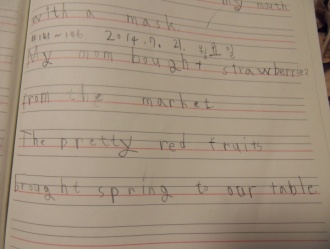 my mouth
with a mask
2014. 9. 21. 일요일
My mom bought strawberries
from the market
The pretty red fruits
brought spring to our table